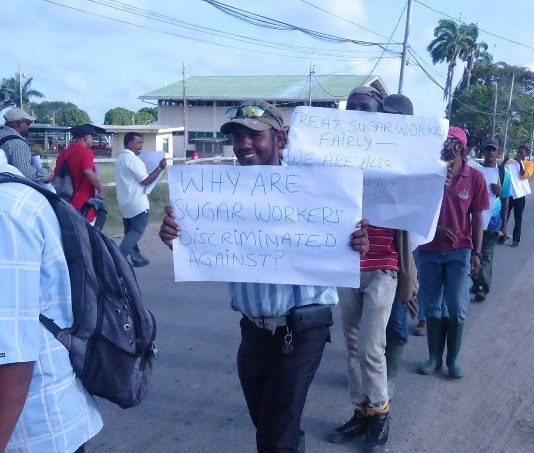 WHY ARE
SUGAR WORKERS'
DISCRIMINATED
AGAINST?
TREAT SUGAR WORKE
FAIRLY —
WE ARE ALSO